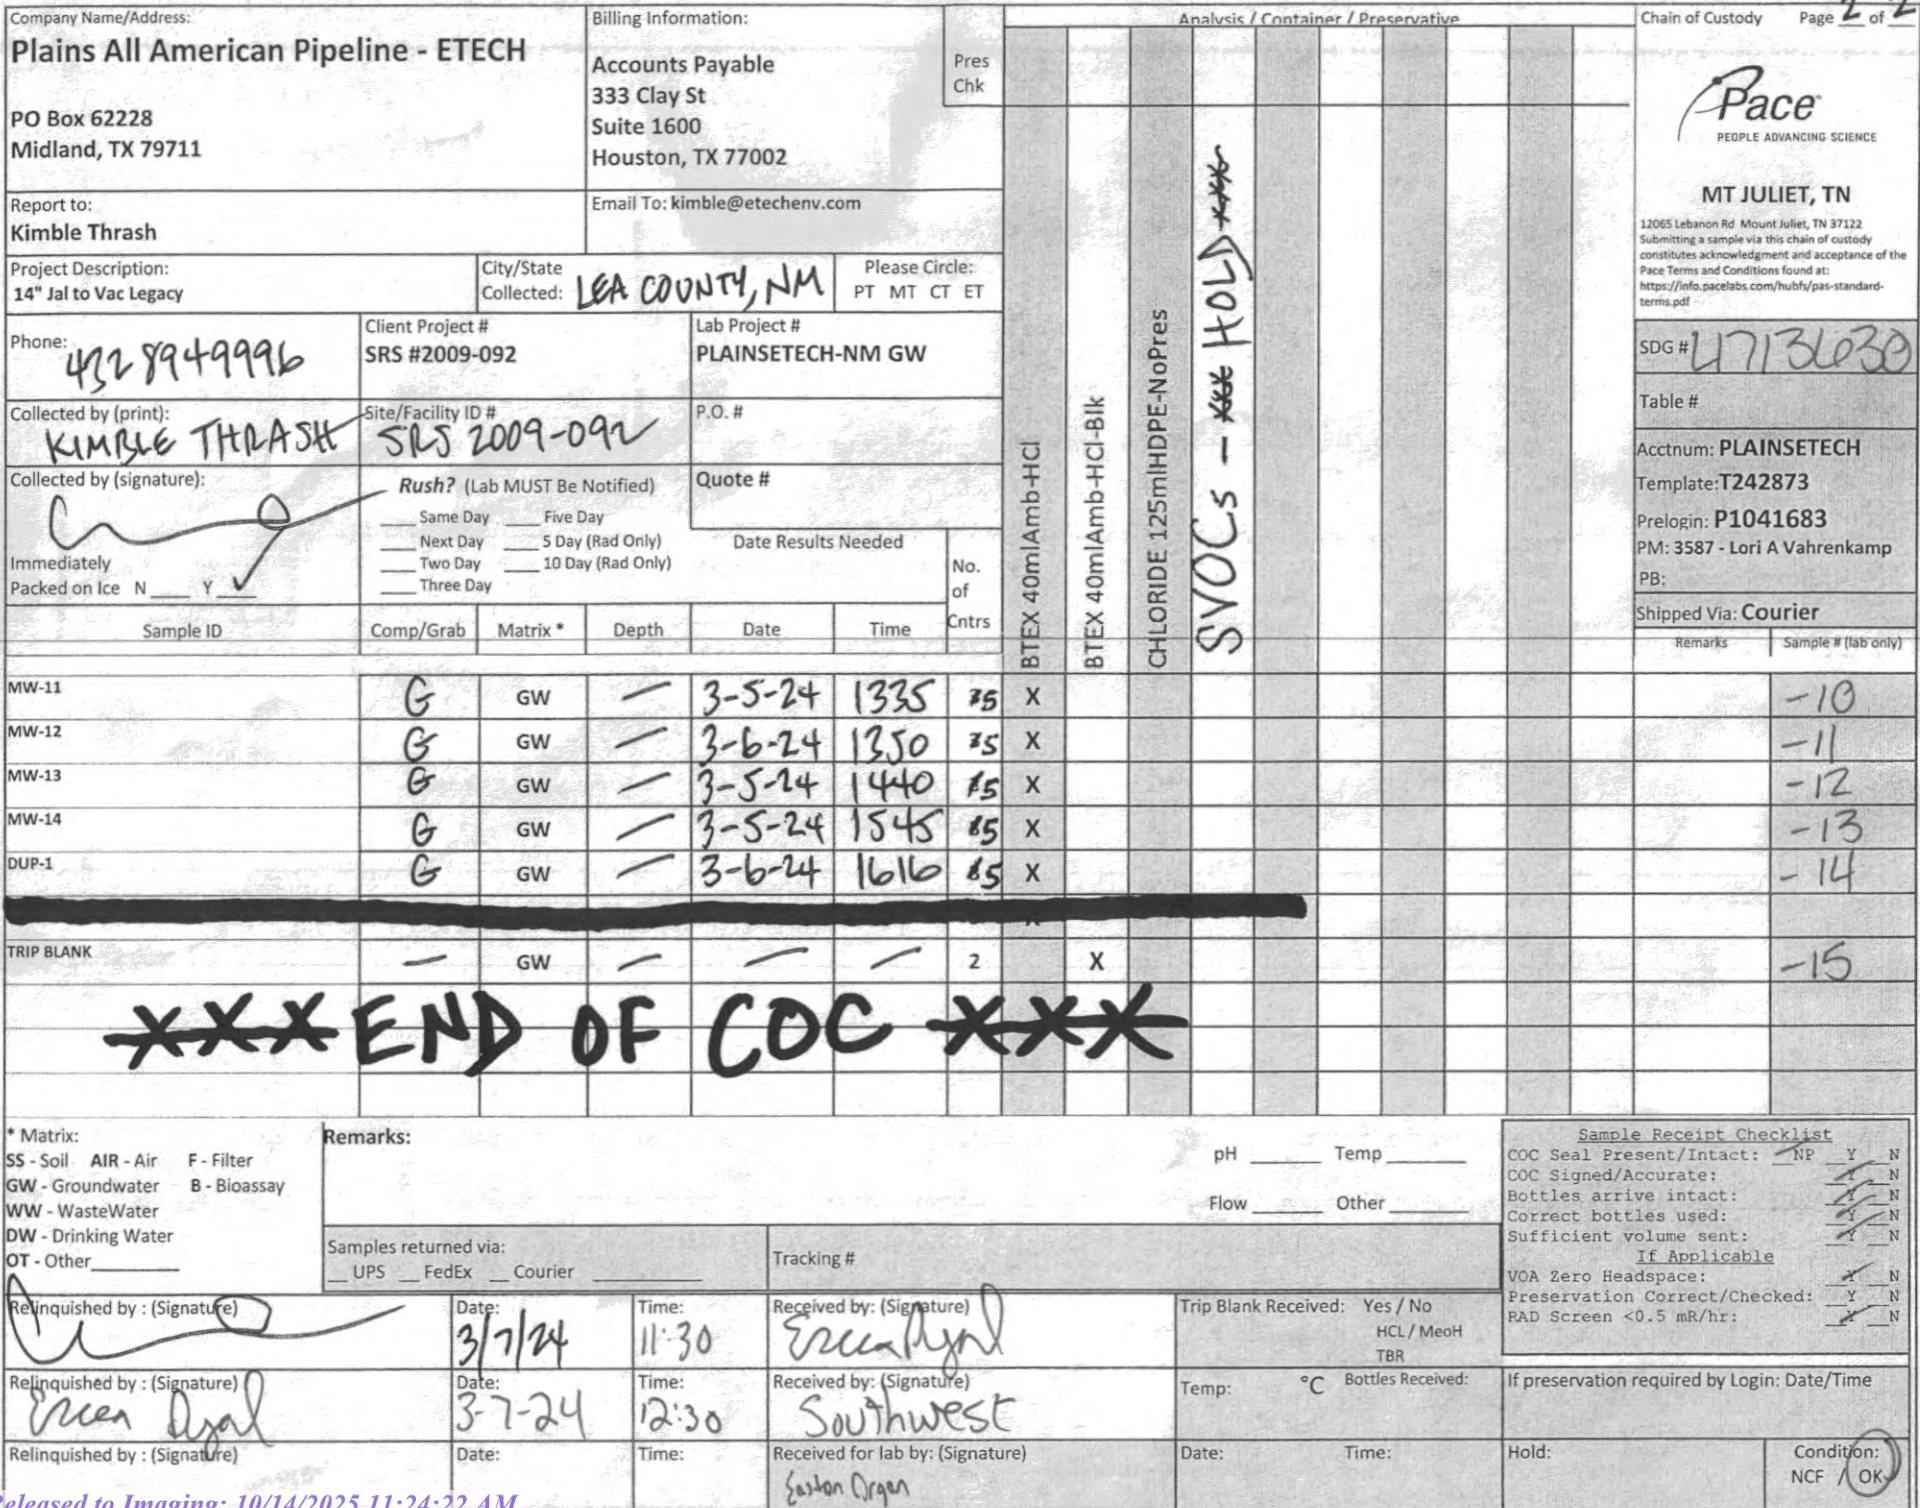 Company Name/Address:
Plains All American Pipeline - ETECH
PO Box 62228
Midland, TX 79711
Billing Information:
Accounts Payable
333 Clay St
Suite 1600
Houston, TX 77002
Pres
Chk
Analysis / Container / Preservative
Chain of Custody Page 2 of 2
Pace
PEOPLE ADVANCING SCIENCE
MT JULIET, TN
12065 Lebanon Rd Mount Juliet, TN 37122
Submitting a sample via this chain of custody
constitutes acknowledgment and acceptance of the
Pace Terms and Conditions found at:
https://info.pacelabs.com/hubfs/pas-standard-
terms.pdf
Report to:
Kimble Thrash
Email To: kimble@etechenv.com
Project Description:
14" Jal to Vac Legacy
City/State
Collected: LEA COUNTY, NM
Please Circle:
PT MT CT ET
Phone: 4328949996
Client Project #
SRS #2009-092
Lab Project #
PLAINSETECH-NM GW
Collected by (print):
KIMBLE THRASH
Site/Facility ID #
SRS 2009-092
P.O. #
Collected by (signature):
Rush? (Lab MUST Be Notified)
___ Same Day ___ Five Day
___ Next Day ___ 5 Day (Rad Only)
___ Two Day ___ 10 Day (Rad Only)
___ Three Day
Quote #
Date Results Needed
Immediately
Packed on Ice N ___ Y ✓
No.
of
Cntrs
BTEX 40mlAmb-HCl
BTEX 40mlAmb-HCl-Blk
CHLORIDE 125mlHDPE-NoPres
SVOCs - xxx HOLD xxx
SDG # L1713630
Table #
Acctnum: PLAINSETECH
Template:T242873
Prelogin: P1041683
PM: 3587 - Lori A Vahrenkamp
PB:
Shipped Via: Courier
Sample ID Comp/Grab Matrix * Depth Date Time Remarks Sample # (lab only)
MW-11 G GW — 3-5-24 1335 5 X -10
MW-12 G GW — 3-6-24 1350 5 X -11
MW-13 G GW — 3-5-24 1440 5 X -12
MW-14 G GW — 3-5-24 1545 5 X -13
DUP-1 G GW — 3-6-24 1616 5 X -14
TRIP BLANK — GW — — — 2 X -15
XXX END OF COC XXX
* Matrix:
SS - Soil AIR - Air F - Filter
GW - Groundwater B - Bioassay
WW - WasteWater
DW - Drinking Water
OT - Other
Remarks:
pH ___ Temp ___
Flow ___ Other ___
Samples returned via:
__ UPS __ FedEx __ Courier
Tracking #
Sample Receipt Checklist
COC Seal Present/Intact: NP Y N
COC Signed/Accurate: Y N
Bottles arrive intact: Y N
Correct bottles used: Y N
Sufficient volume sent: Y N
If Applicable
VOA Zero Headspace: Y N
Preservation Correct/Checked: Y N
RAD Screen <0.5 mR/hr: Y N
Relinquished by : (Signature)
Date: 3/7/24
Time: 11:30
Received by: (Signature)
Trip Blank Received: Yes / No
HCL / MeoH
TBR
Relinquished by : (Signature)
Date: 3-7-24
Time: 12:30
Received by: (Signature)
Southwest
Temp: °C Bottles Received:
If preservation required by Login: Date/Time
Relinquished by : (Signature)
Date:
Time:
Received for lab by: (Signature)
Easton Organ
Date: Time:
Hold:
Condition:
NCF / OK
Released to Imaging: 10/14/2025 11:24:22 AM